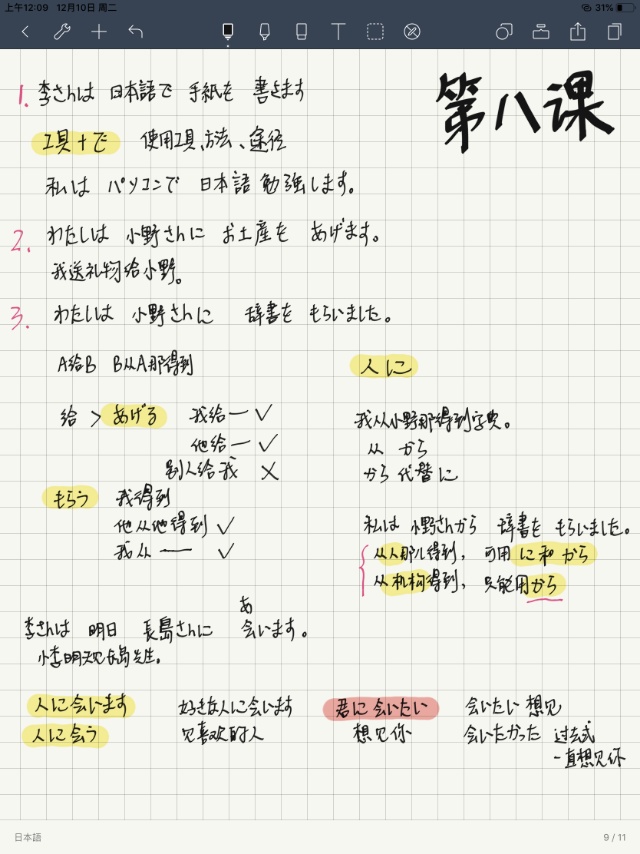 上午12:09 12月10日 周二
31%
第八课
1. 李さんは 日本語で 手紙を 書きます
工具+で 使用工具、方法、途径
私は パソコンで 日本語 勉強します。
2. わたしは 小野さんに お土産を あげます。
我送礼物给小野。
3. わたしは 小野さんに 辞書を もらいました。
A给B B从A那得到
人に
给 > あげる 我给一 ✓
他给一 ✓
别人给我 ×
もらう 我得到
他从他得到 ✓
我从 — ✓
我从小野那得到字典。
从 から
から 代替に
私は 小野さんから 辞書を もらいました。
从人那儿得到, 可用 に和 から
从机构得到, 只能用から
あ
李さんは 明日 長島さんに 会います。
小李明天见长岛先生。
人に会います 好きな人に会います 君に会いたい 会いたい 想见
人に会う 见喜欢的人 想见你 会いたかった 过去式
一直想见你
日本語
9 / 11